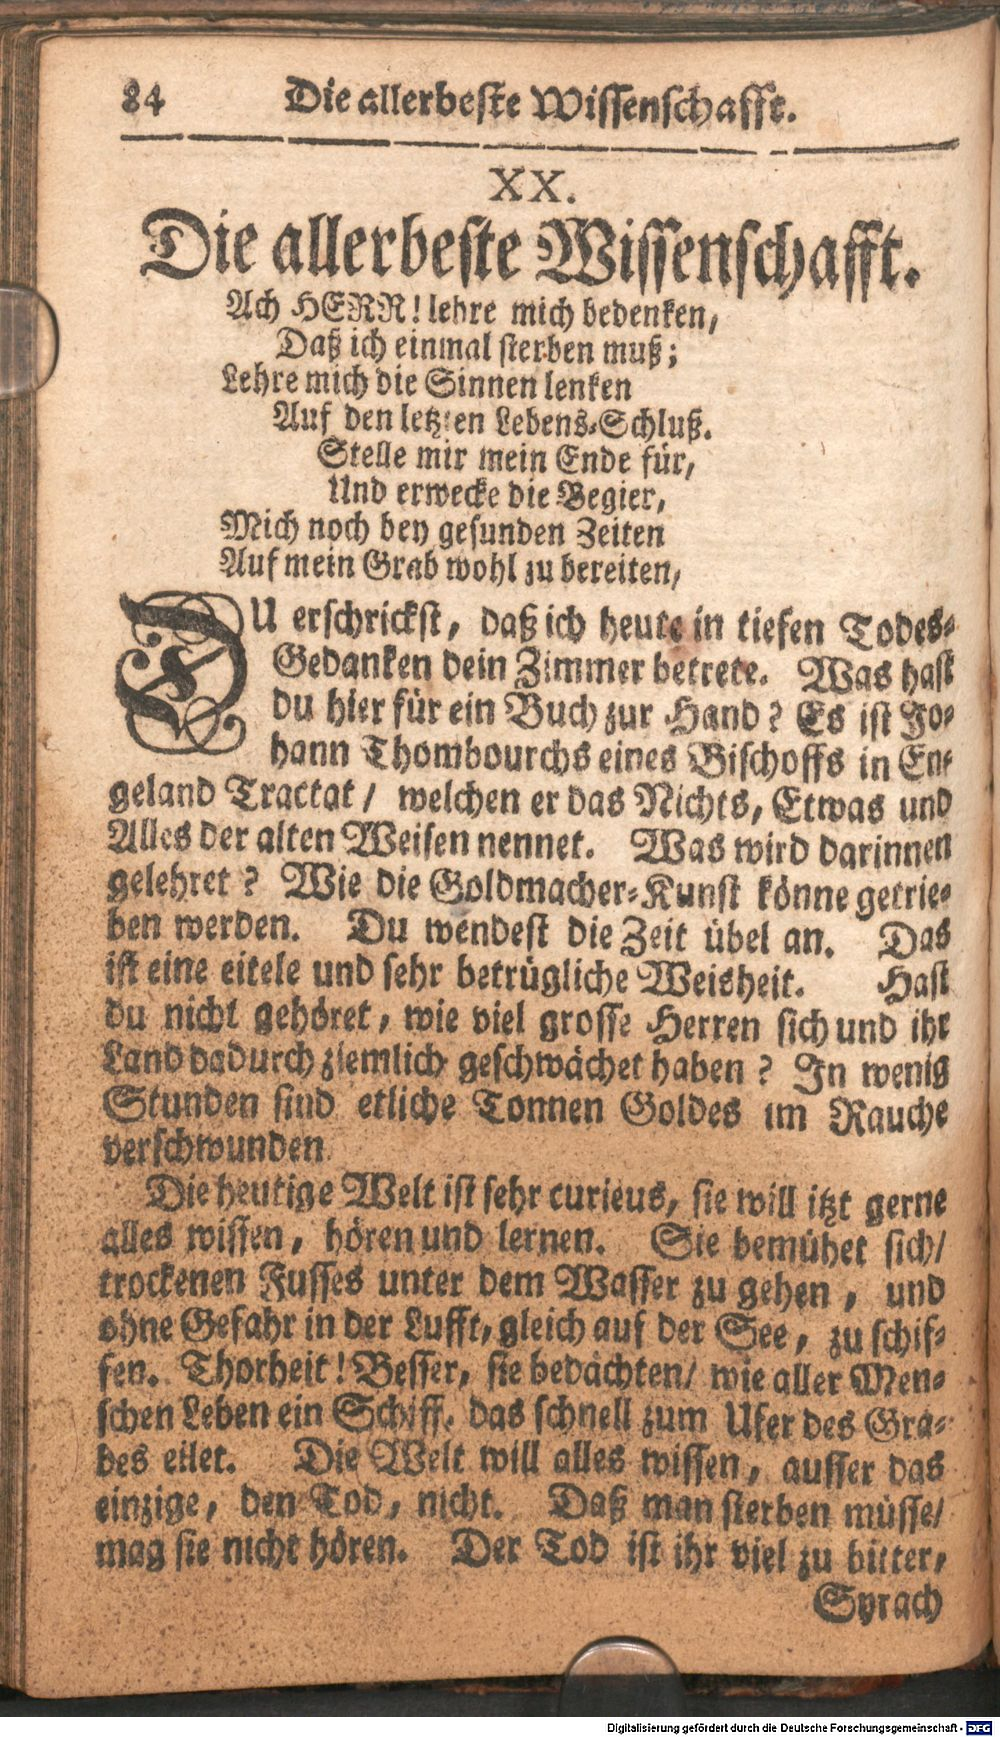 84 Die allerbeste Wissenschafft.
XX.
Die allerbeste Wissenschafft.
Ach HERR! lehre mich bedenken,
Daß ich einmal sterben muß;
Lehre mich die Sinnen lenken
Auf den letzten Lebens-Schluß.
Stelle mir mein Ende für,
Und erwecke die Begier,
Mich noch bey gesunden Zeiten
Auf mein Grab wohl zu bereiten,
DU erschrickst, daß ich heute in tiefen Todes-
Gedanken dein Zimmer betrete. Was hast
du hier für ein Buch zur Hand? Es ist Jo-
hann Thombourchs eines Bischoffs in En-
geland Tractat / welchen er das Nichts, Etwas und
Alles der alten Weisen nennet. Was wird darinnen
gelehret? Wie die Goldmacher-Kunst könne getrie-
ben werden. Du wendest die Zeit übel an. Das
ist eine eitele und sehr betrügliche Weisheit. Hast
du nicht gehöret, wie viel grosse Herren sich und ihr
Land dadurch ziemlich geschwächet haben? In wenig
Stunden sind etliche Tonnen Goldes im Rauche
verschwunden.
Die heutige Welt ist sehr curieus, sie will itzt gerne
alles wissen, hören und lernen. Sie bemühet sich/
trockenen Fusses unter dem Wasser zu gehen, und
ohne Gefahr in der Lufft, gleich auf der See, zu schif-
fen. Thorheit! Besser, sie bedächten/ wie aller Men-
schen Leben ein Schiff, das schnell zum Ufer des Gra-
bes eilet. Die Welt will alles wissen, ausser das
einzige, den Tod, nicht. Daß man sterben müsse/
mag sie nicht hören. Der Tod ist ihr viel zu bitter,
Syrach
Digitalisierung gefördert durch die Deutsche Forschungsgemeinschaft - DFG